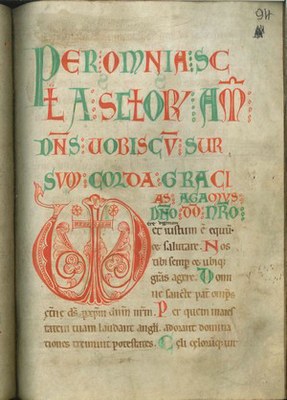 94
PER OMNIA SC
LA SCLORV AM
DNS UOBISCV SUR
SUM CORDA GRACI
AS AGAMUS
DNO DO NRO
et iustum e equu
& salutare. Nos
tibi semp & ubiq
gras agere. Domi
ne sancte pat omps
etne ds. p xpm dnm nrm. Per quem maies
tatem tuam laudant angli. adorant domina
tiones tremunt potestates. Celi celorumq uir